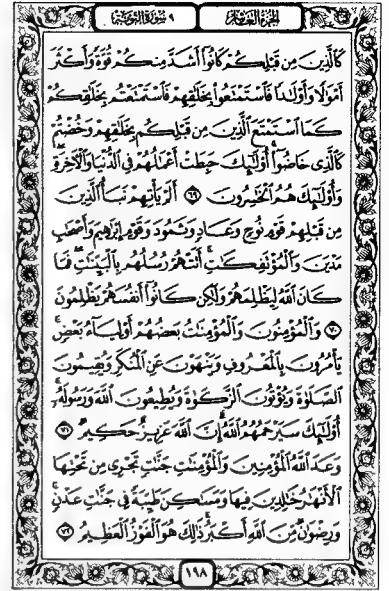 الجزء العاشر
٩ سورة التوبة
كَالَّذِينَ مِن قَبْلِكُمْ كَانُوٓا۟ أَشَدَّ مِنكُمْ قُوَّةً وَأَكْثَرَ
أَمْوَٰلًا وَأَوْلَٰدًا فَٱسْتَمْتَعُوا۟ بِخَلَٰقِهِمْ فَٱسْتَمْتَعْتُم بِخَلَٰقِكُمْ
كَمَا ٱسْتَمْتَعَ ٱلَّذِينَ مِن قَبْلِكُم بِخَلَٰقِهِمْ وَخُضْتُمْ
كَٱلَّذِى خَاضُوٓا۟ أُو۟لَٰٓئِكَ حَبِطَتْ أَعْمَٰلُهُمْ فِى ٱلدُّنْيَا وَٱلْءَاخِرَةِ
وَأُو۟لَٰٓئِكَ هُمُ ٱلْخَٰسِرُونَ ٦٩ أَلَمْ يَأْتِهِمْ نَبَأُ ٱلَّذِينَ
مِن قَبْلِهِمْ قَوْمِ نُوحٍ وَعَادٍ وَثَمُودَ وَقَوْمِ إِبْرَٰهِيمَ وَأَصْحَٰبِ
مَدْيَنَ وَٱلْمُؤْتَفِكَٰتِ أَتَتْهُمْ رُسُلُهُم بِٱلْبَيِّنَٰتِ فَمَا
كَانَ ٱللَّهُ لِيَظْلِمَهُمْ وَلَٰكِن كَانُوٓا۟ أَنفُسَهُمْ يَظْلِمُونَ
٧٠ وَٱلْمُؤْمِنُونَ وَٱلْمُؤْمِنَٰتُ بَعْضُهُمْ أَوْلِيَآءُ بَعْضٍ
يَأْمُرُونَ بِٱلْمَعْرُوفِ وَيَنْهَوْنَ عَنِ ٱلْمُنكَرِ وَيُقِيمُونَ
ٱلصَّلَوٰةَ وَيُؤْتُونَ ٱلزَّكَوٰةَ وَيُطِيعُونَ ٱللَّهَ وَرَسُولَهُۥٓ
أُو۟لَٰٓئِكَ سَيَرْحَمُهُمُ ٱللَّهُ إِنَّ ٱللَّهَ عَزِيزٌ حَكِيمٌ ٧١
وَعَدَ ٱللَّهُ ٱلْمُؤْمِنِينَ وَٱلْمُؤْمِنَٰتِ جَنَّٰتٍ تَجْرِى مِن تَحْتِهَا
ٱلْأَنْهَٰرُ خَٰلِدِينَ فِيهَا وَمَسَٰكِنَ طَيِّبَةً فِى جَنَّٰتِ عَدْنٍ
وَرِضْوَٰنٌ مِّنَ ٱللَّهِ أَكْبَرُ ذَٰلِكَ هُوَ ٱلْفَوْزُ ٱلْعَظِيمُ ٧٢
١٩٨